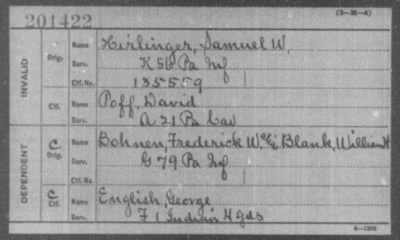 201422
(3-35-4)
INVALID
Orig.
Name Herlinger, Samuel W.
Serv. K 56 Pa Inf
Ctf. No. 135559
Ctf.
Name Poff, David
Serv. A 21 Pa Cav
DEPENDENT
C Orig.
Name Bohnen, Frederick W. Blank, William H
Serv. G 79 Pa Inf
Ctf. No.
C Ctf.
Name English, George
Serv. F 1 Indian H Gds